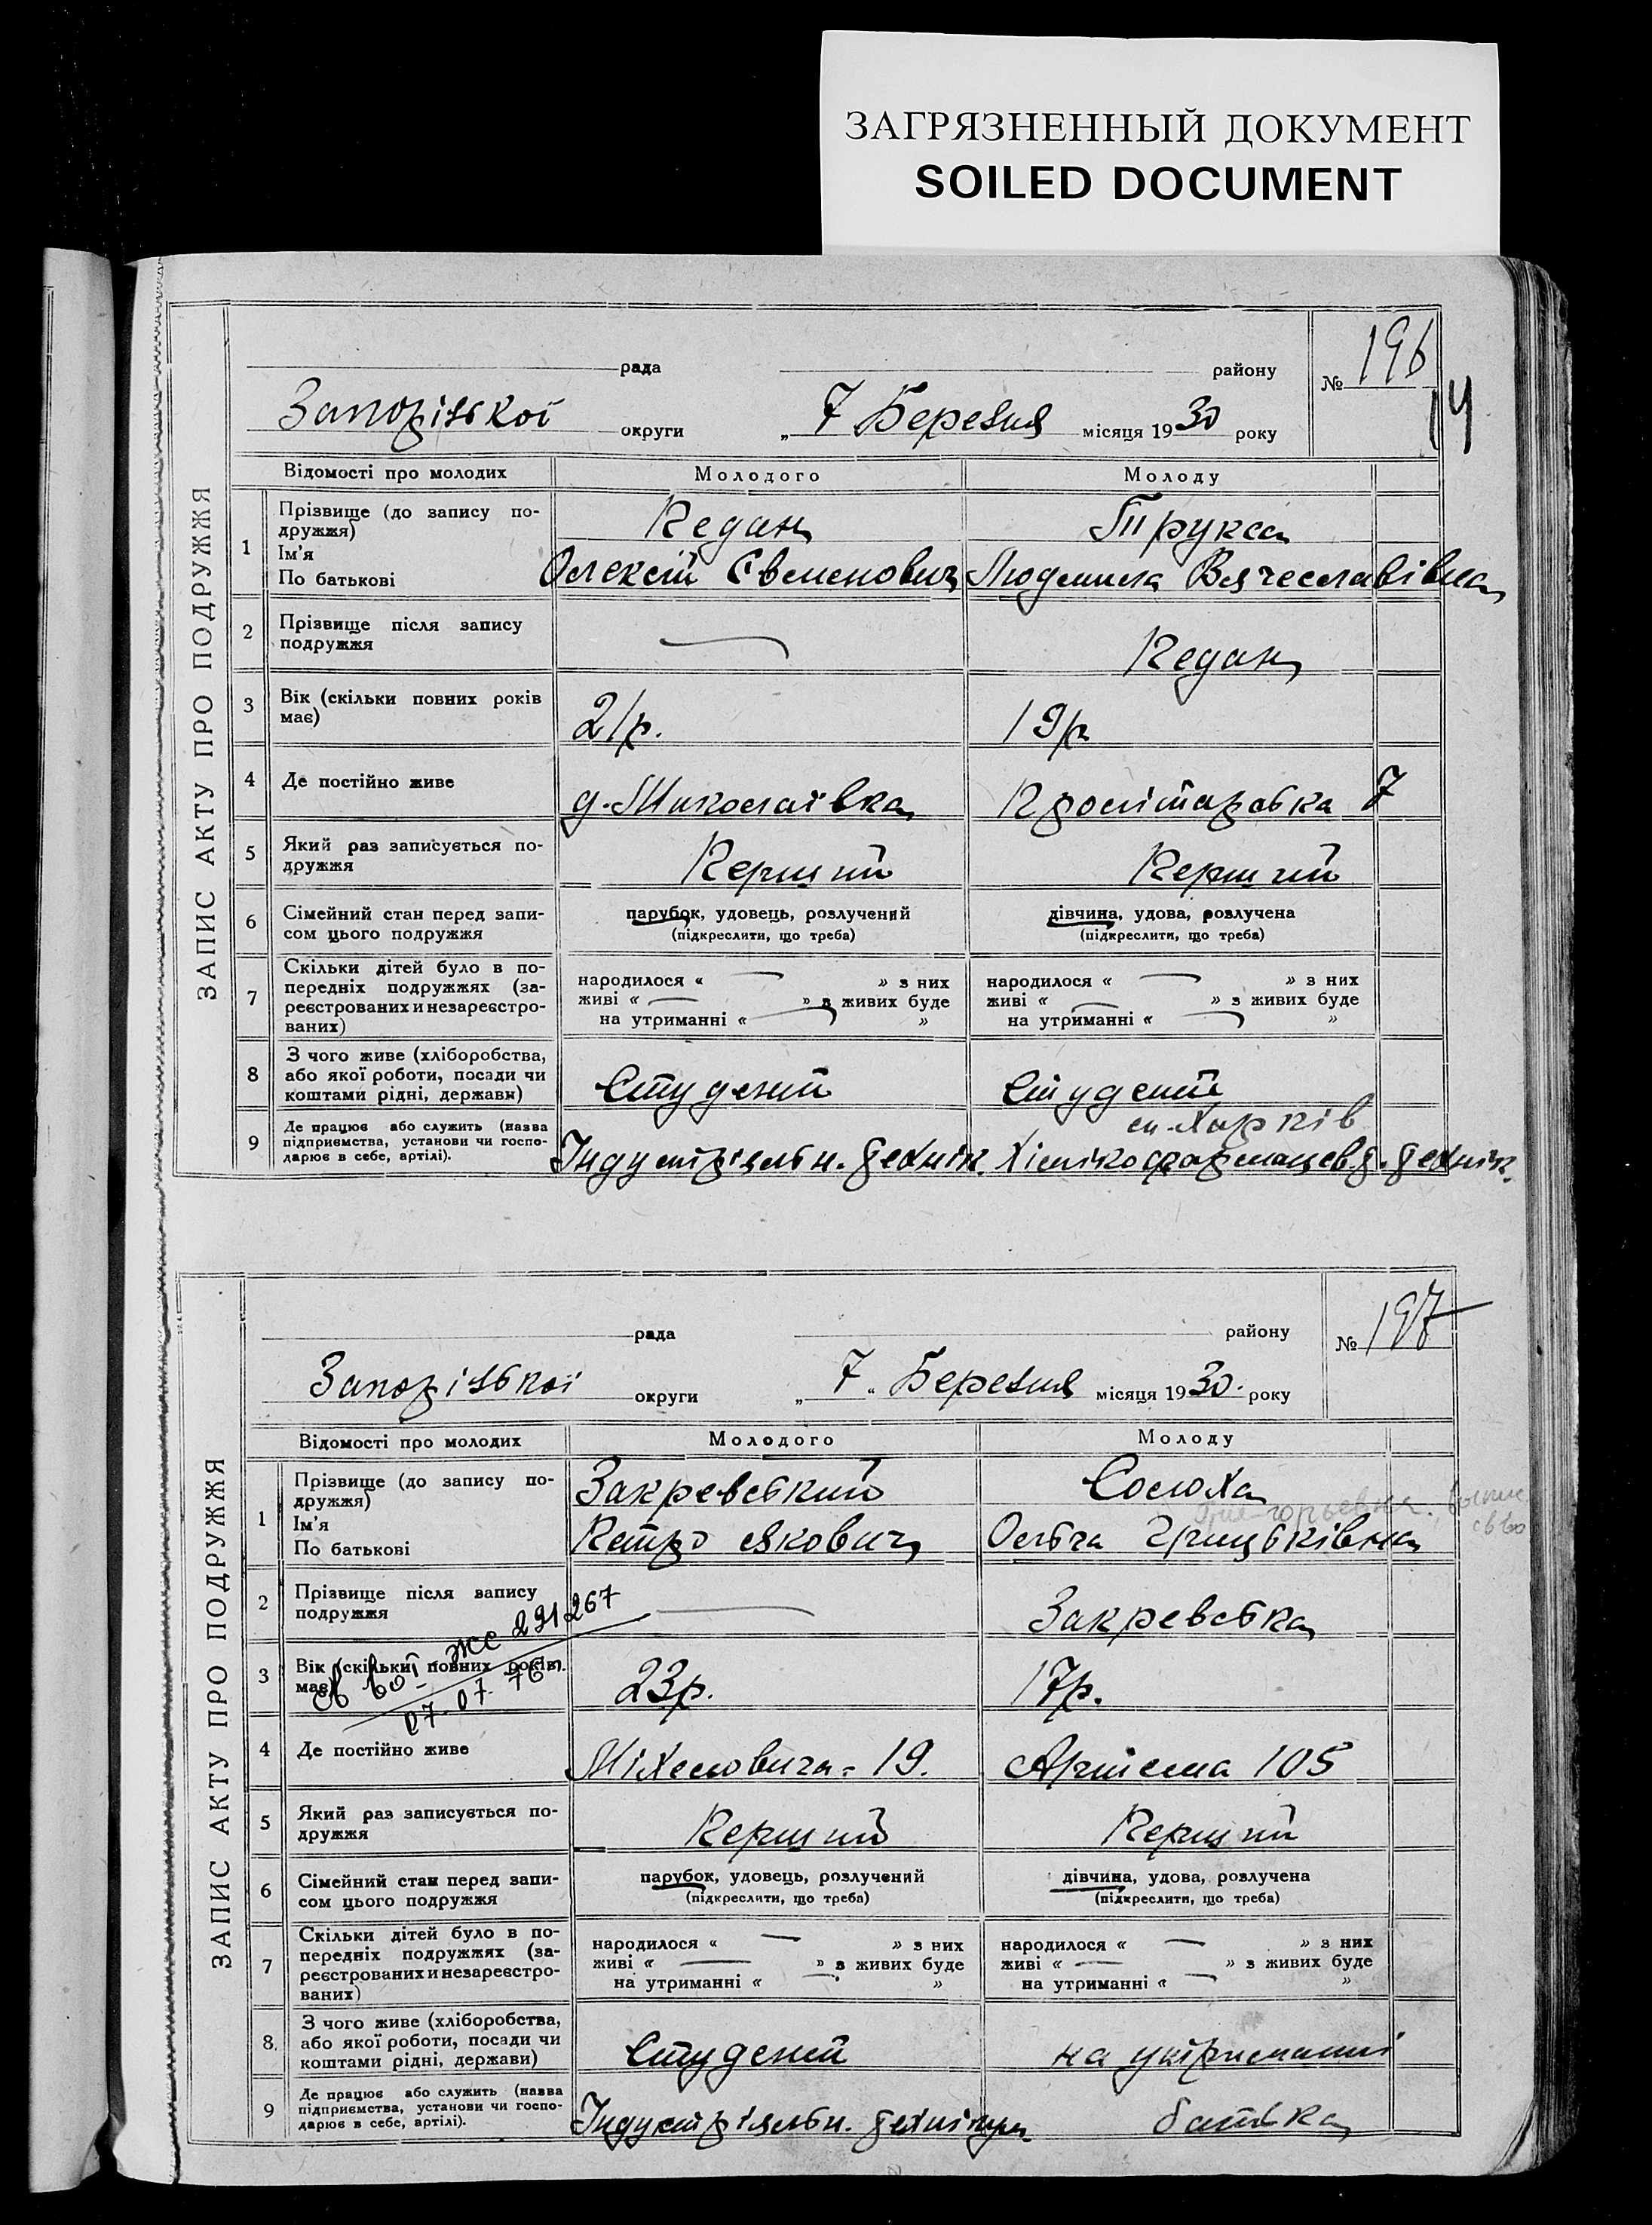 ЗАГРЯЗНЕННЫЙ ДОКУМЕНТ
SOILED DOCUMENT
ЗАПИС АКТУ ПРО ПОДРУЖЖЯ
рада району № 196
14
Запорізької округи „ 7 Березня місяця 1930 року
Відомості про молодих Молодого Молоду
1 Прізвище (до запису по-
дружжя) Кедан Трукса
Ім'я
По батькові Олексій Євменович Людмила Вячеславівна
2 Прізвище після запису
подружжя — Кедан
3 Вік (скільки повних років
має) 21р. 19р
4 Де постійно живе д. Миколаївка 7
5 Який раз записується по-
дружжя Перший Перший
6 Сімейний стан перед запи-
сом цього подружжя
парубок, удовець, розлучений дівчина, удова, розлучена
(підкреслити, що треба) (підкреслити, що треба)
7 Скільки дітей було в по-
передніх подружжях (за-
реєстрованих и незареєстро-
ваних)
народилося « — » з них народилося « — » з них
живі « — » з живих буде живі « — » з живих буде
на утриманні « — » на утриманні « — »
8 З чого живе (хліборобства,
або якої роботи, посади чи
коштами рідні, держави) Студент Студент
9 Де працює або служить (назва
підприємства, установи чи госпо-
дарює в себе, артілі).
м. Харків
Індустріяльн. технік. Хімікофармацевт. технік.
ЗАПИС АКТУ ПРО ПОДРУЖЖЯ
рада району № 197
Запорізької округи „ 7 “ Березня місяця 1930. року
Відомості про молодих Молодого Молоду
1 Прізвище (до запису по-
дружжя) Закревський Сосюха
Ім'я
По батькові Петро Якович Ольга Грицьківна
Григорьевна.
2 Прізвище після запису
подружжя — Закревська
ЖС 291267
07.07.76г.
3 Вік (скільки повних років
має) 23р. 17р.
4 Де постійно живе Міхеловича-19. Артема 105
5 Який раз записується по-
дружжя Перший Перший
6 Сімейний стан перед запи-
сом цього подружжя
парубок, удовець, розлучений дівчина, удова, розлучена
(підкреслити, що треба) (підкреслити, що треба)
7 Скільки дітей було в по-
передніх подружжях (за-
реєстрованих и незареєстро-
ваних)
народилося « — » з них народилося « — » з них
живі « — » з живих буде живі « — » з живих буде
на утриманні « — » на утриманні « — »
8. З чого живе (хліборобства,
або якої роботи, посади чи
коштами рідні, держави) Студент на утриманні
9 Де працює або служить (назва
підприємства, установи чи госпо-
дарює в себе, артілі).
Індустріяльн. технікум. батька